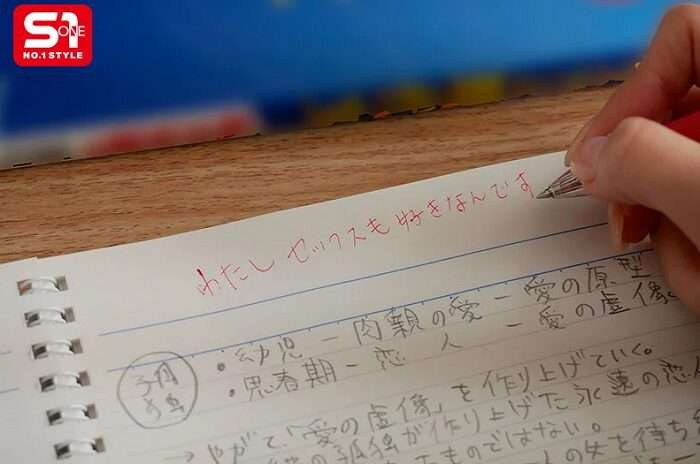 S1
ONE
NO.1 STYLE
わたしセックスも好きなんです
・幼児－肉親の愛－愛の原型
・思春期－恋人－愛の虚像
→やがて、「愛の虚像」を作り上げていく。
の孤独が作り上げた永遠の恋人
ものではない。
人の女を待ち